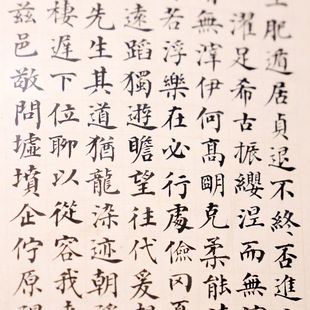 肥遁居貞退不終否進
濯足希古振纓涅而無
無滓伊何高明克柔能
若浮樂在必行處儉罔
遠蹈獨遊瞻望往代爰
先生其道猶龍染迹朝
棲遲下位聊以從容我
茲邑敬問墟墳企佇原